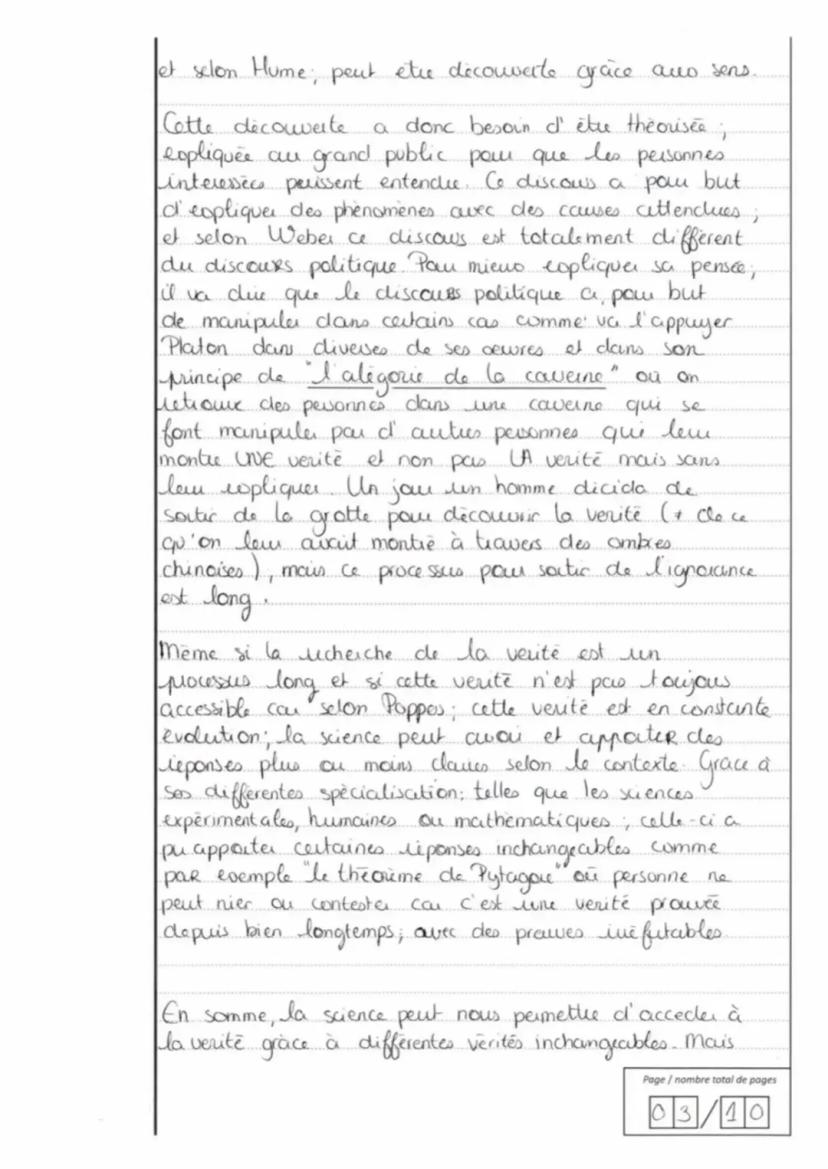 et selon Hume; peut être découverte grâce aux sens.
Cette découverte a donc besoin d'être théorisée;
expliquée au grand public pour que les personnes
interessées puissent entendre. Ce discours a pour but
d'expliquer des phénomènes avec des causes attendues;
et selon Weber ce discours est totalement différent
du discours politique. Pour mieux expliquer sa pensée;
il va dire que le discours politique a pour but
de manipuler dans certains cas comme va l'appuyer
Platon dans diverses de ses œuvres et dans son
principe de "l'alégorie de la caverne" où on
retrouve des personnes dans une caverne qui se
font manipuler par d'autres personnes qui leur
montre UNE verité et non pas LA verité mais sans
leur expliquer. Un jour un homme décida de
sortir de la grotte pour découvrir la verité (≠ de ce
qu'on leur avait montré à travers des ombres
chinoises), mais ce processus pour sortir de l'ignorance
est long.
Même si la recherche de la verité est un
processus long et si cette verité n'est pas toujours
accessible car selon Popper; cette verité est en constante
évolution; la science peut avoir et apporter des
réponses plus ou moins claires selon le contexte. Grace à
ses différentes spécialisation; telles que les sciences
expérimentales, humaines ou mathématiques; celle-ci a
pu apporter certaines réponses inchangeables comme
par exemple "le théorème de Pytagore" où personne ne
peut nier ou contester car c'est une verité prouvée
depuis bien longtemps; avec des preuves iréfutables
En somme, la science peut nous permettre d'acceder à
la verité grâce à différentes vérités inchangeables. Mais
Page / nombre total de pages
03/10